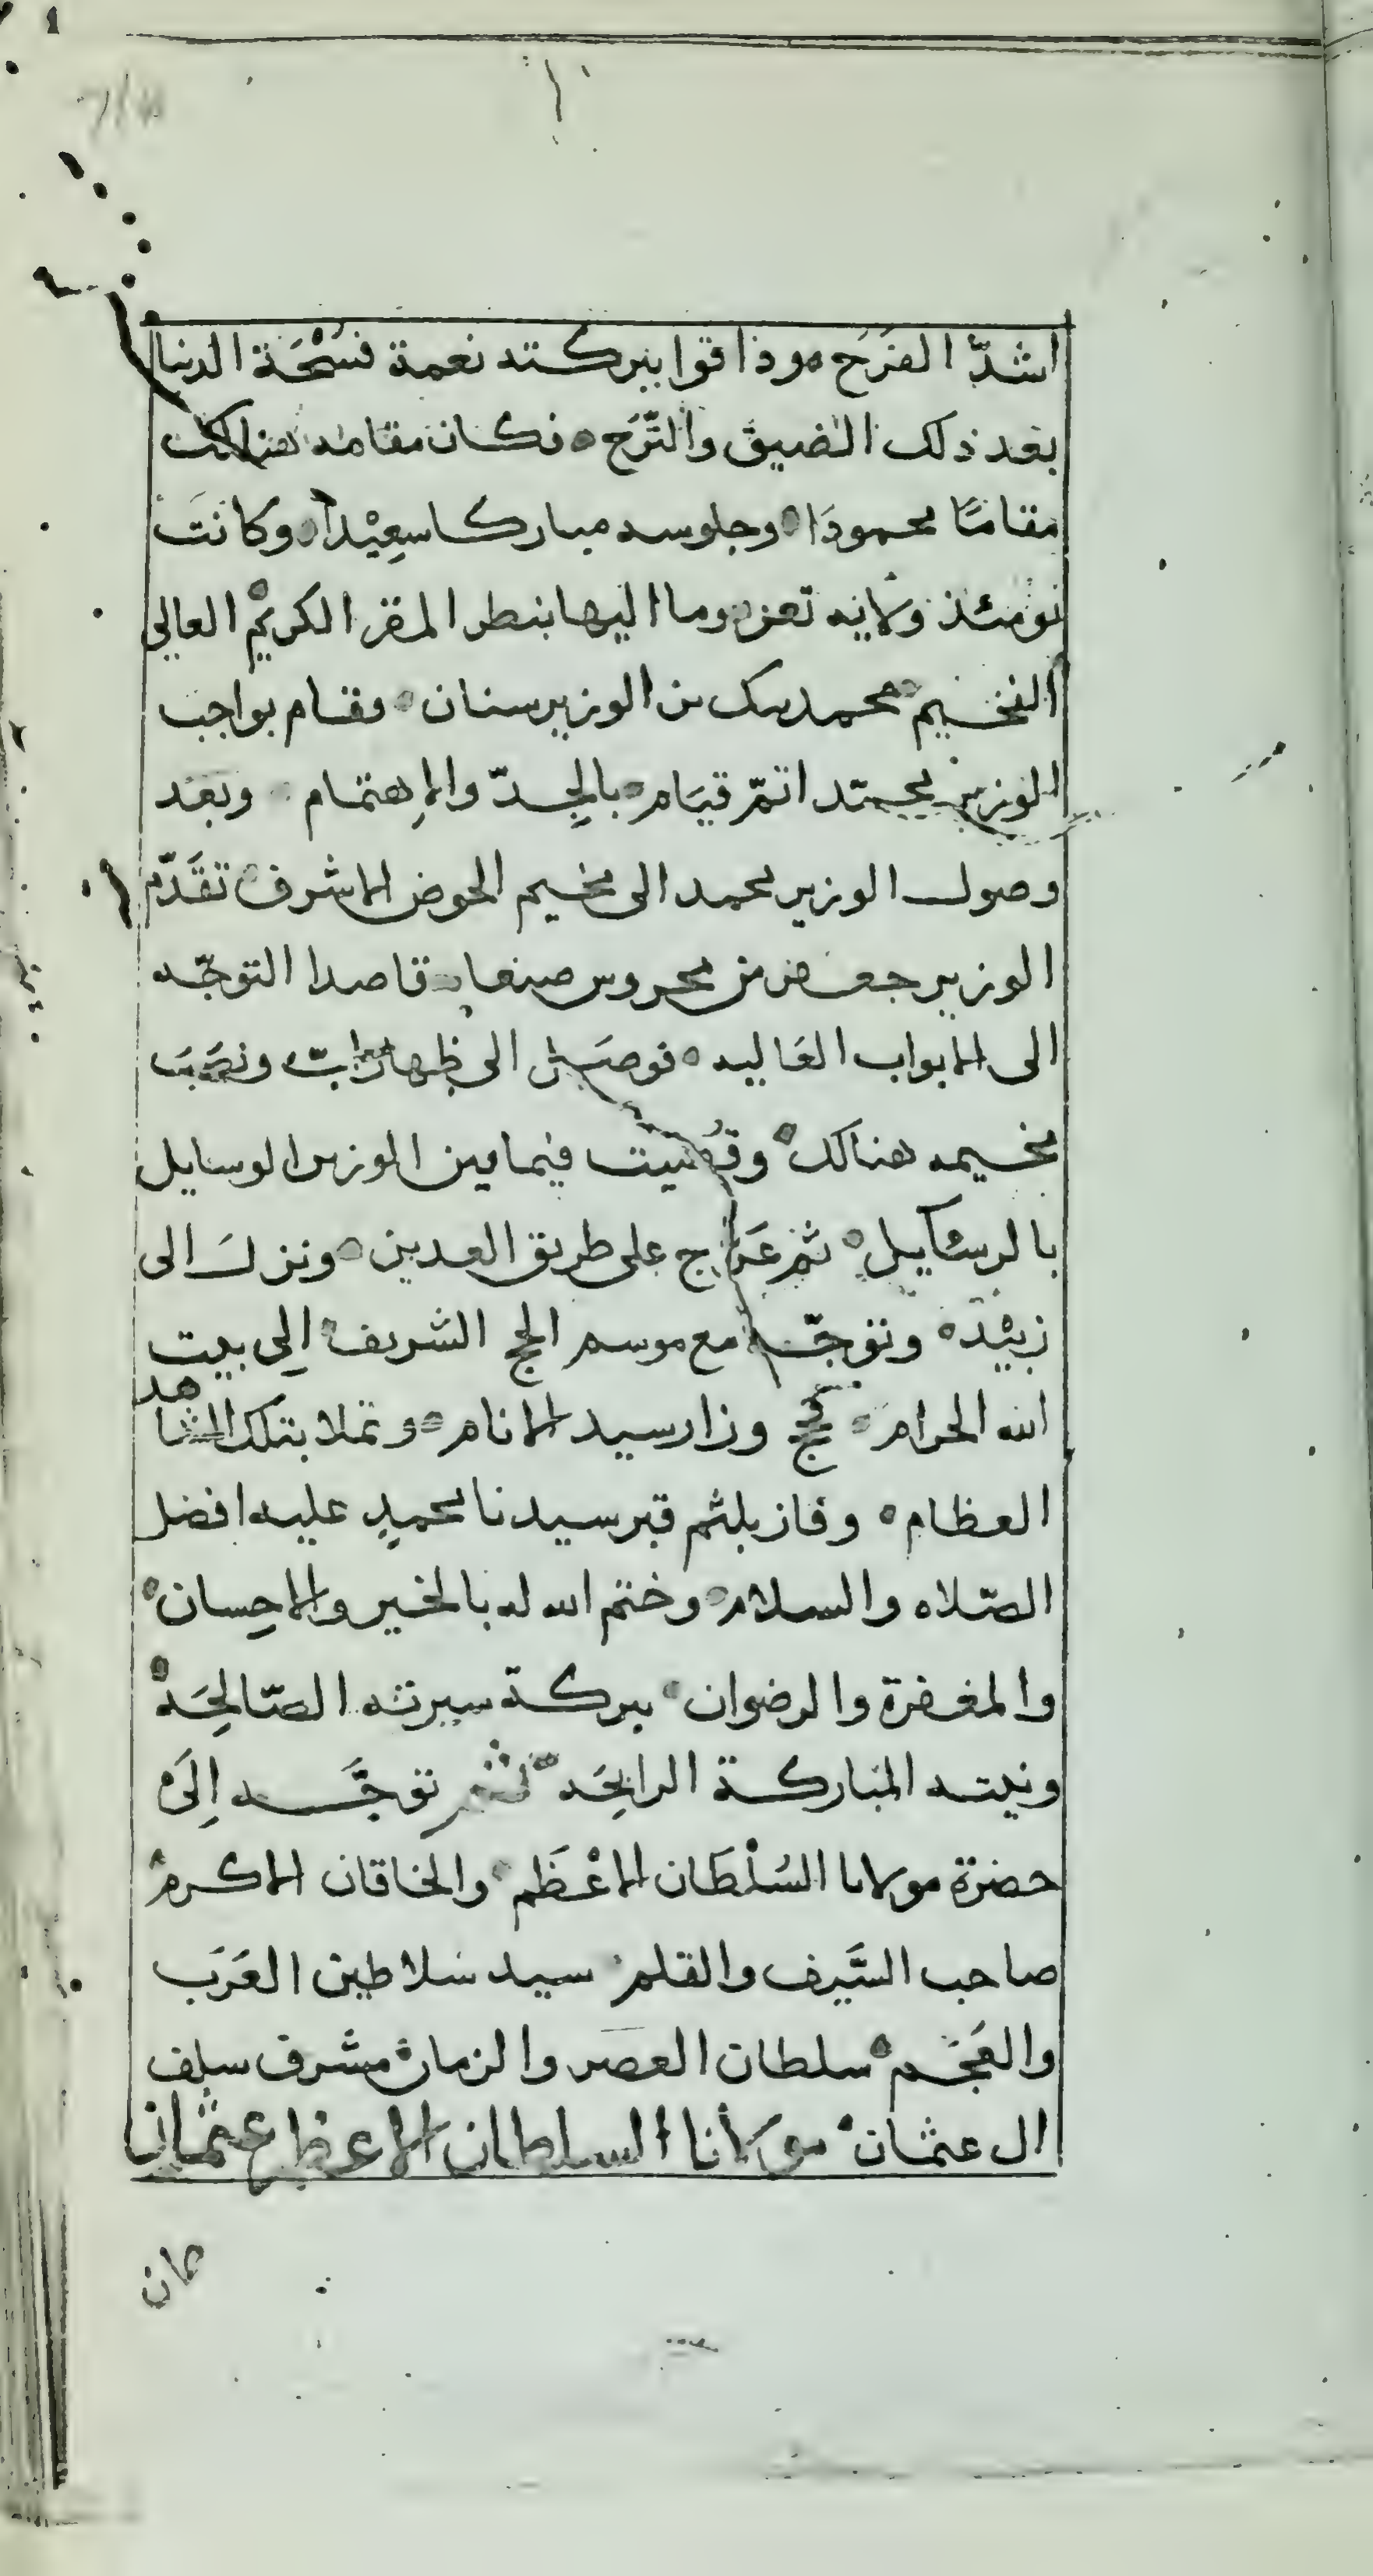 اشدّ الفَرَح ه وذاقوا ببركته نعمة فُسْحَة الدنيا
بعد ذلك الضيق والتّرَح ه فكان مقامه هنالك
مقامًا محمودًا ه وجلوسه مباركا سعِيْداً ه وكانَت
يومئذ ولايه تعز وما اليها بنظر المقر الكريم العالي
الفخيم محمد بيك بن الوزير سنان ه وقام بواجب
الوزير محمد اتمّ قيَام ه بالجِدّ والاِهتمام وبَعْد
وصول الوزير محمد الى مخيم الحوض الاشرف تقَدّم
الوزير جعفر من محروس صنعا ه قاصدا التوجّه
الى الابواب العَاليه ه فوصَل الى ونصَبَ
مخيمه هنالك ه وقُضيت فيما بين الوزيرين الوسايل
بالرسَايل ه ثم عَرَّج على طريق العدين ه ونزلَ الى
زبيْد ه وتوجّه مع موسم الحج الشريف الِى بيت
الله الحرام ه فحج وزار سيد الانام ه وتملا بتلك المشاهد
العظام ه وفاز بلثم قبر سيدنا محمدٍ عليه افضل
الصّلاه والسلام ه وختم الله له بالخير والاحِسان ه
والمغفرة والرضوان ه ببركة سيرته الصّالِحَه
ونيته المبَاركة الرابِحَه ثم توجَّه اِلَى
حضرة مولانا السُلْطَان الاعْظَم ه والخاقان الاكرم ه
صاحب السَّيف والقلم ه سيد سَلاطين العَرَب
والعَجَم ه سلطان العصر والزمان ه مشرف سلف
ال عثمان ه مولانا السلطان الاعظم عثمان